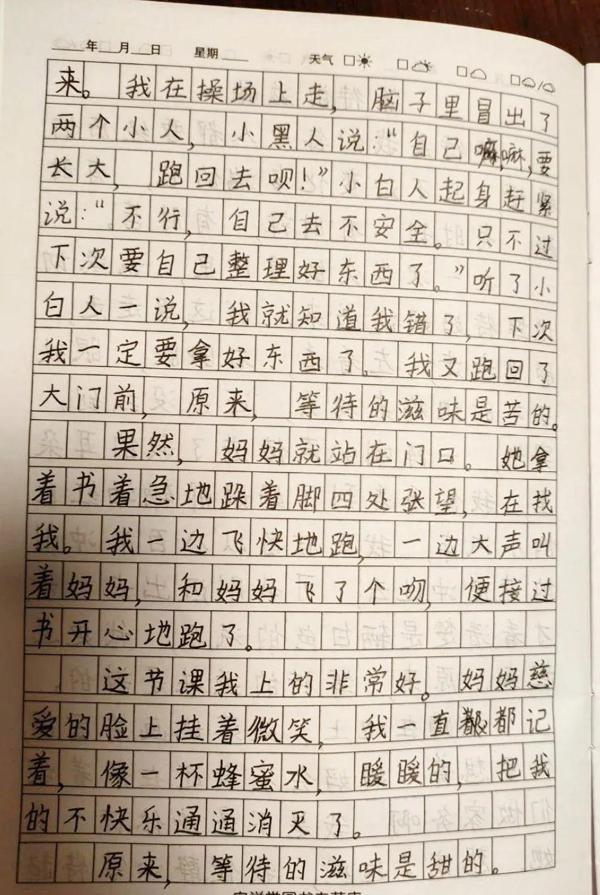 年 月 日 星期 天气
来。我在操场上走，脑子里冒出了
两个小人，小黑人说：“自己嘛嘛，要
长大，跑回去呗！”小白人起身赶紧
说：“不行，自己去不安全。只不过
下次要自己整理好东西了。”听了小
白人一说，我就知道我错了，下次
我一定要拿好东西了。我又跑回了
大门前，原来，等待的滋味是苦的。
果然，妈妈就站在门口。她拿
着书着急地跺着脚四处张望，在找
我。我一边飞快地跑，一边大声叫
着妈妈，和妈妈飞了个吻，便接过
书开心地跑了。
这节课我上的非常好。妈妈慈
爱的脸上挂着微笑，我一直都记
着，像一杯蜂蜜水，暖暖的，把我
的不快乐通通消灭了。
原来，等待的滋味是甜的。